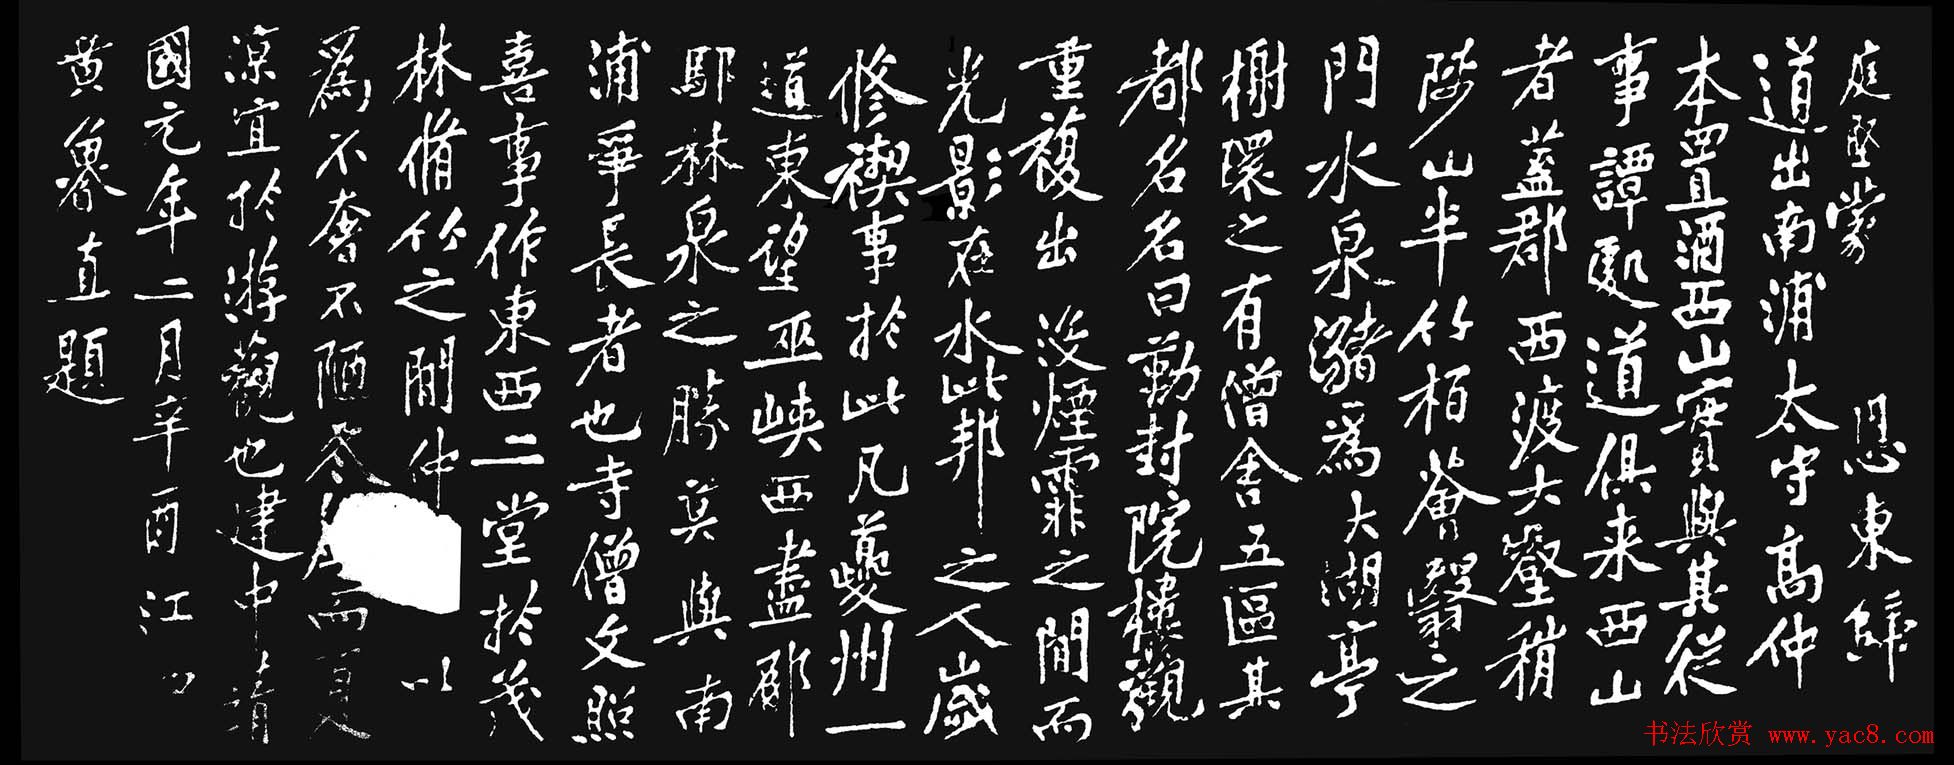 庭堅蒙 恩東歸
道出南浦太守高仲
本置酒西山實與其從
事譚處道俱来西山
者蓋郡西渡大壑稍
陟山半竹栢薈翳之
門水泉瀦爲大湖亭
榭環之有僧舍五區其
都名名曰勤封院樓觀
重複出没煙霏之間而
光影在水此邦之人歲
修禊事於此凡夔州一
道東望巫峽西盡郁
鄢林泉之勝莫與南
浦爭長者也寺僧文照
喜事作東西二堂於茂
林脩竹之間仲 以
爲不奢不陋冬 而夏
涼宜於游觀也建中靖
國元年二月辛酉江
黄魯直題
书法欣赏 www.yac8.com